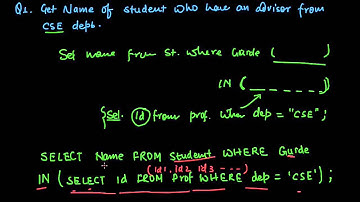 Q1. Get Name of student who have an advisor from
CSE dept.
Sel name from St. where Guide (
)
IN ( _ _ _ _ _ )
{Sel. id from prof. when dep = "CSE";
SELECT Name FROM student WHERE Guide
(id1, id2, id3 ---)
IN (SELECT id FROM Prof WHERE dep = 'CSE');